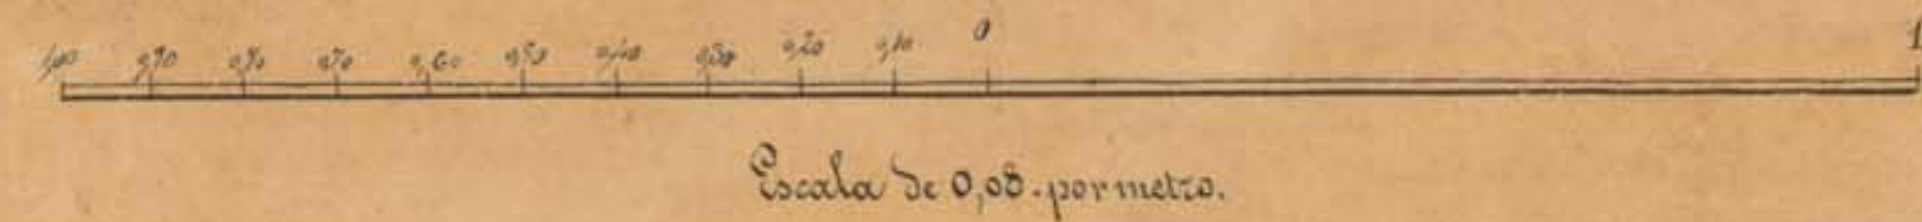 1,00 0,90 0,80 0,70 0,60 0,50 0,40 0,30 0,20 0,10 0 1
Escala de 0,08 - por metro.